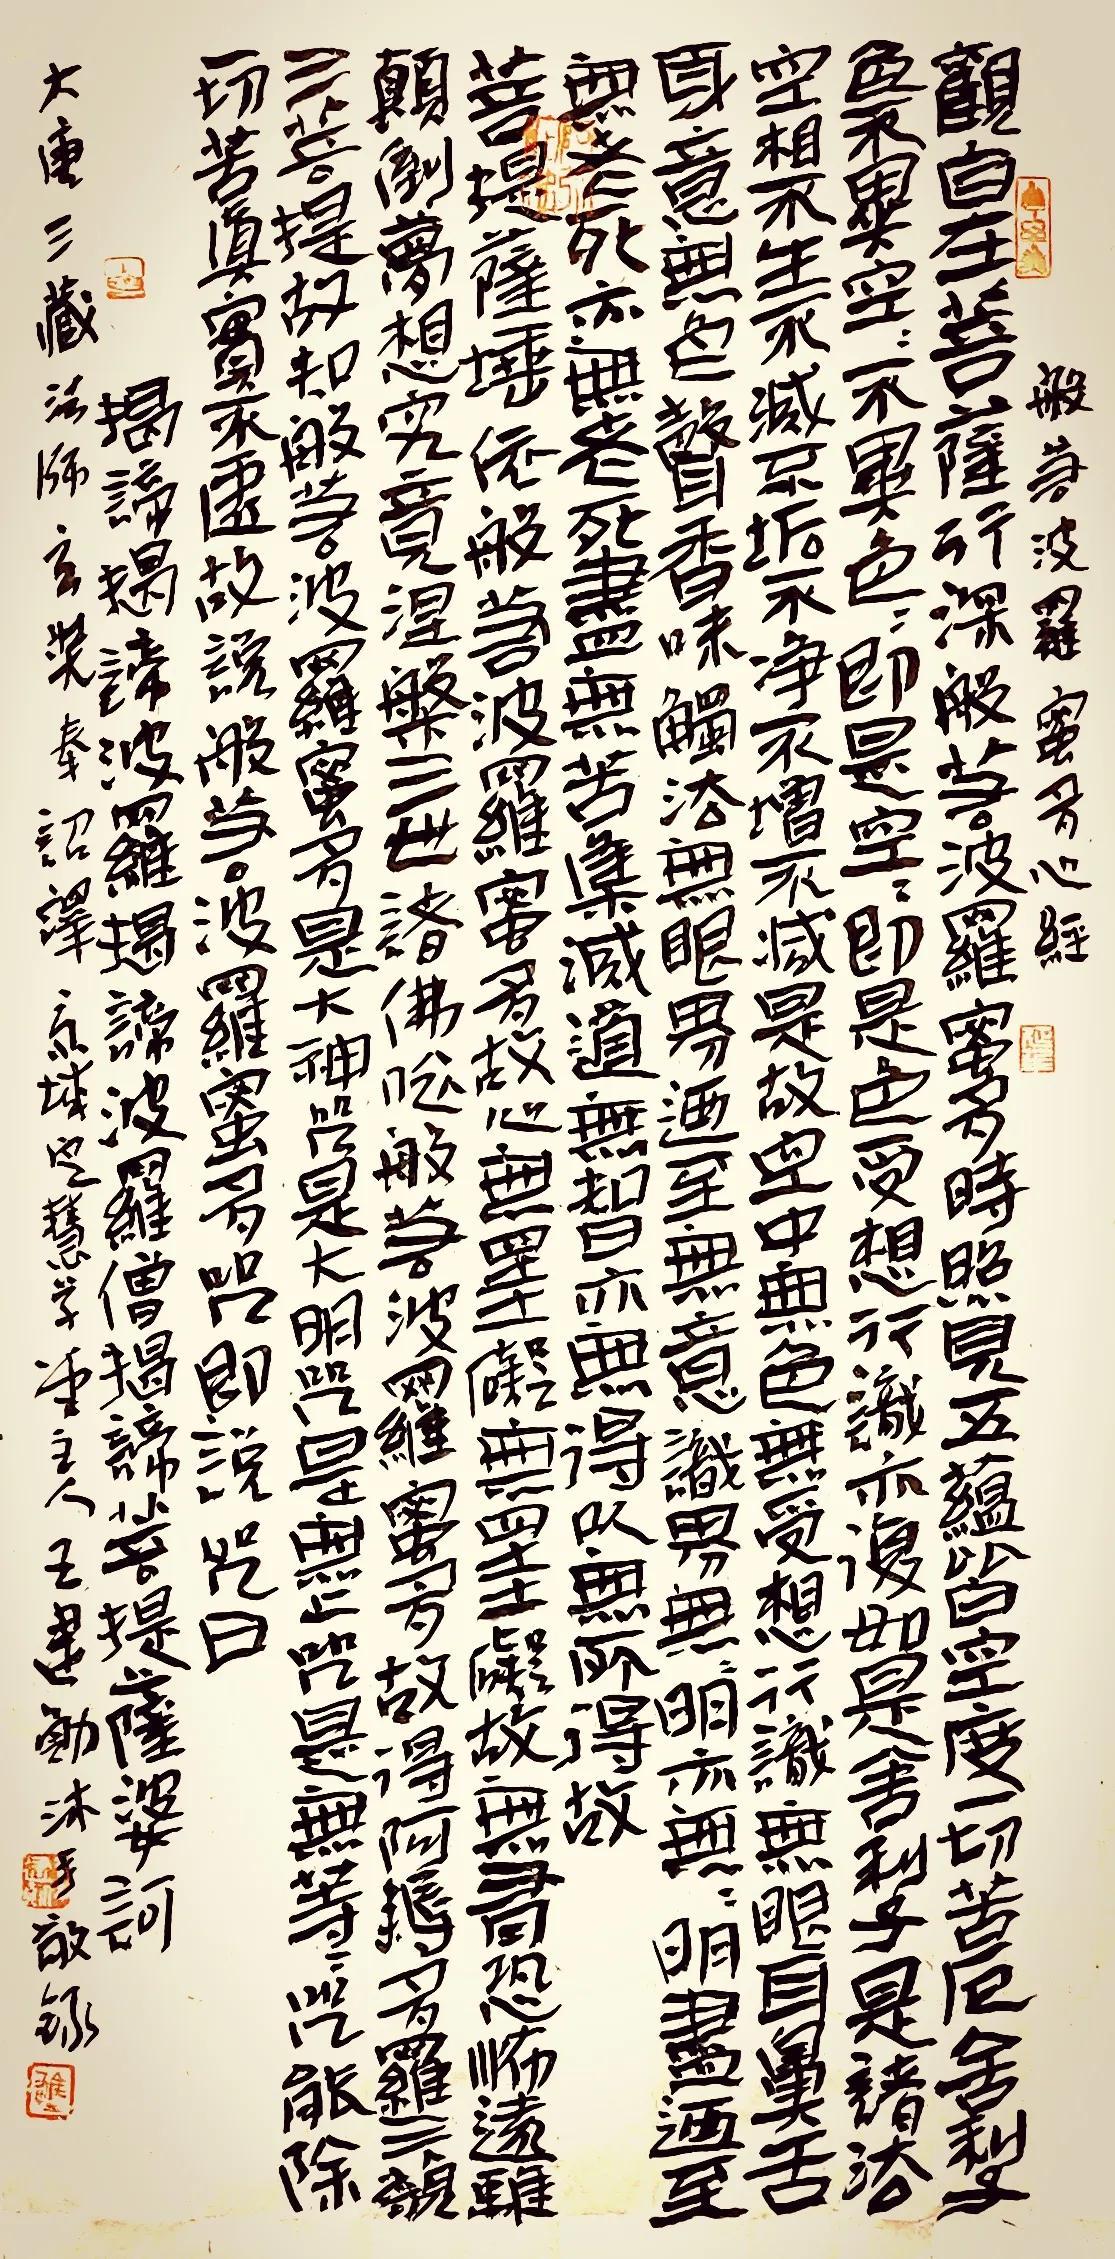 般若波羅蜜多心經
觀自在菩薩行深般若波羅蜜多時照見五蘊皆空度一切苦厄舍利子
色不異空〻不異色〻即是空〻即是色受想行識亦復如是舍利子是諸法
空相不生不滅不垢不净不增不减是故空中無色無受想行識無眼耳鼻舌
身意無色聲香味觸法無眼界迺至無意識界無無〻明亦無〻明盡迺至
無老死亦無老死盡無苦集滅道無智亦無得以無所得故
菩提薩埵依般若波羅蜜多故心無罣礙無罣礙故無有恐怖遠離
顛倒夢想究竟涅槃三世諸佛依般若波羅蜜多故得阿耨多羅三藐
三菩提故知般若波羅蜜多是大神咒是大明咒是無上咒是無等〻咒能除
一切苦真實不虛故說般若波羅蜜多咒即說咒曰
揭諦揭諦波羅揭諦波羅僧揭諦菩提薩婆訶
大唐三藏法師玄奘奉詔譯京城定慧学堂主人王建勳沐手敬錄